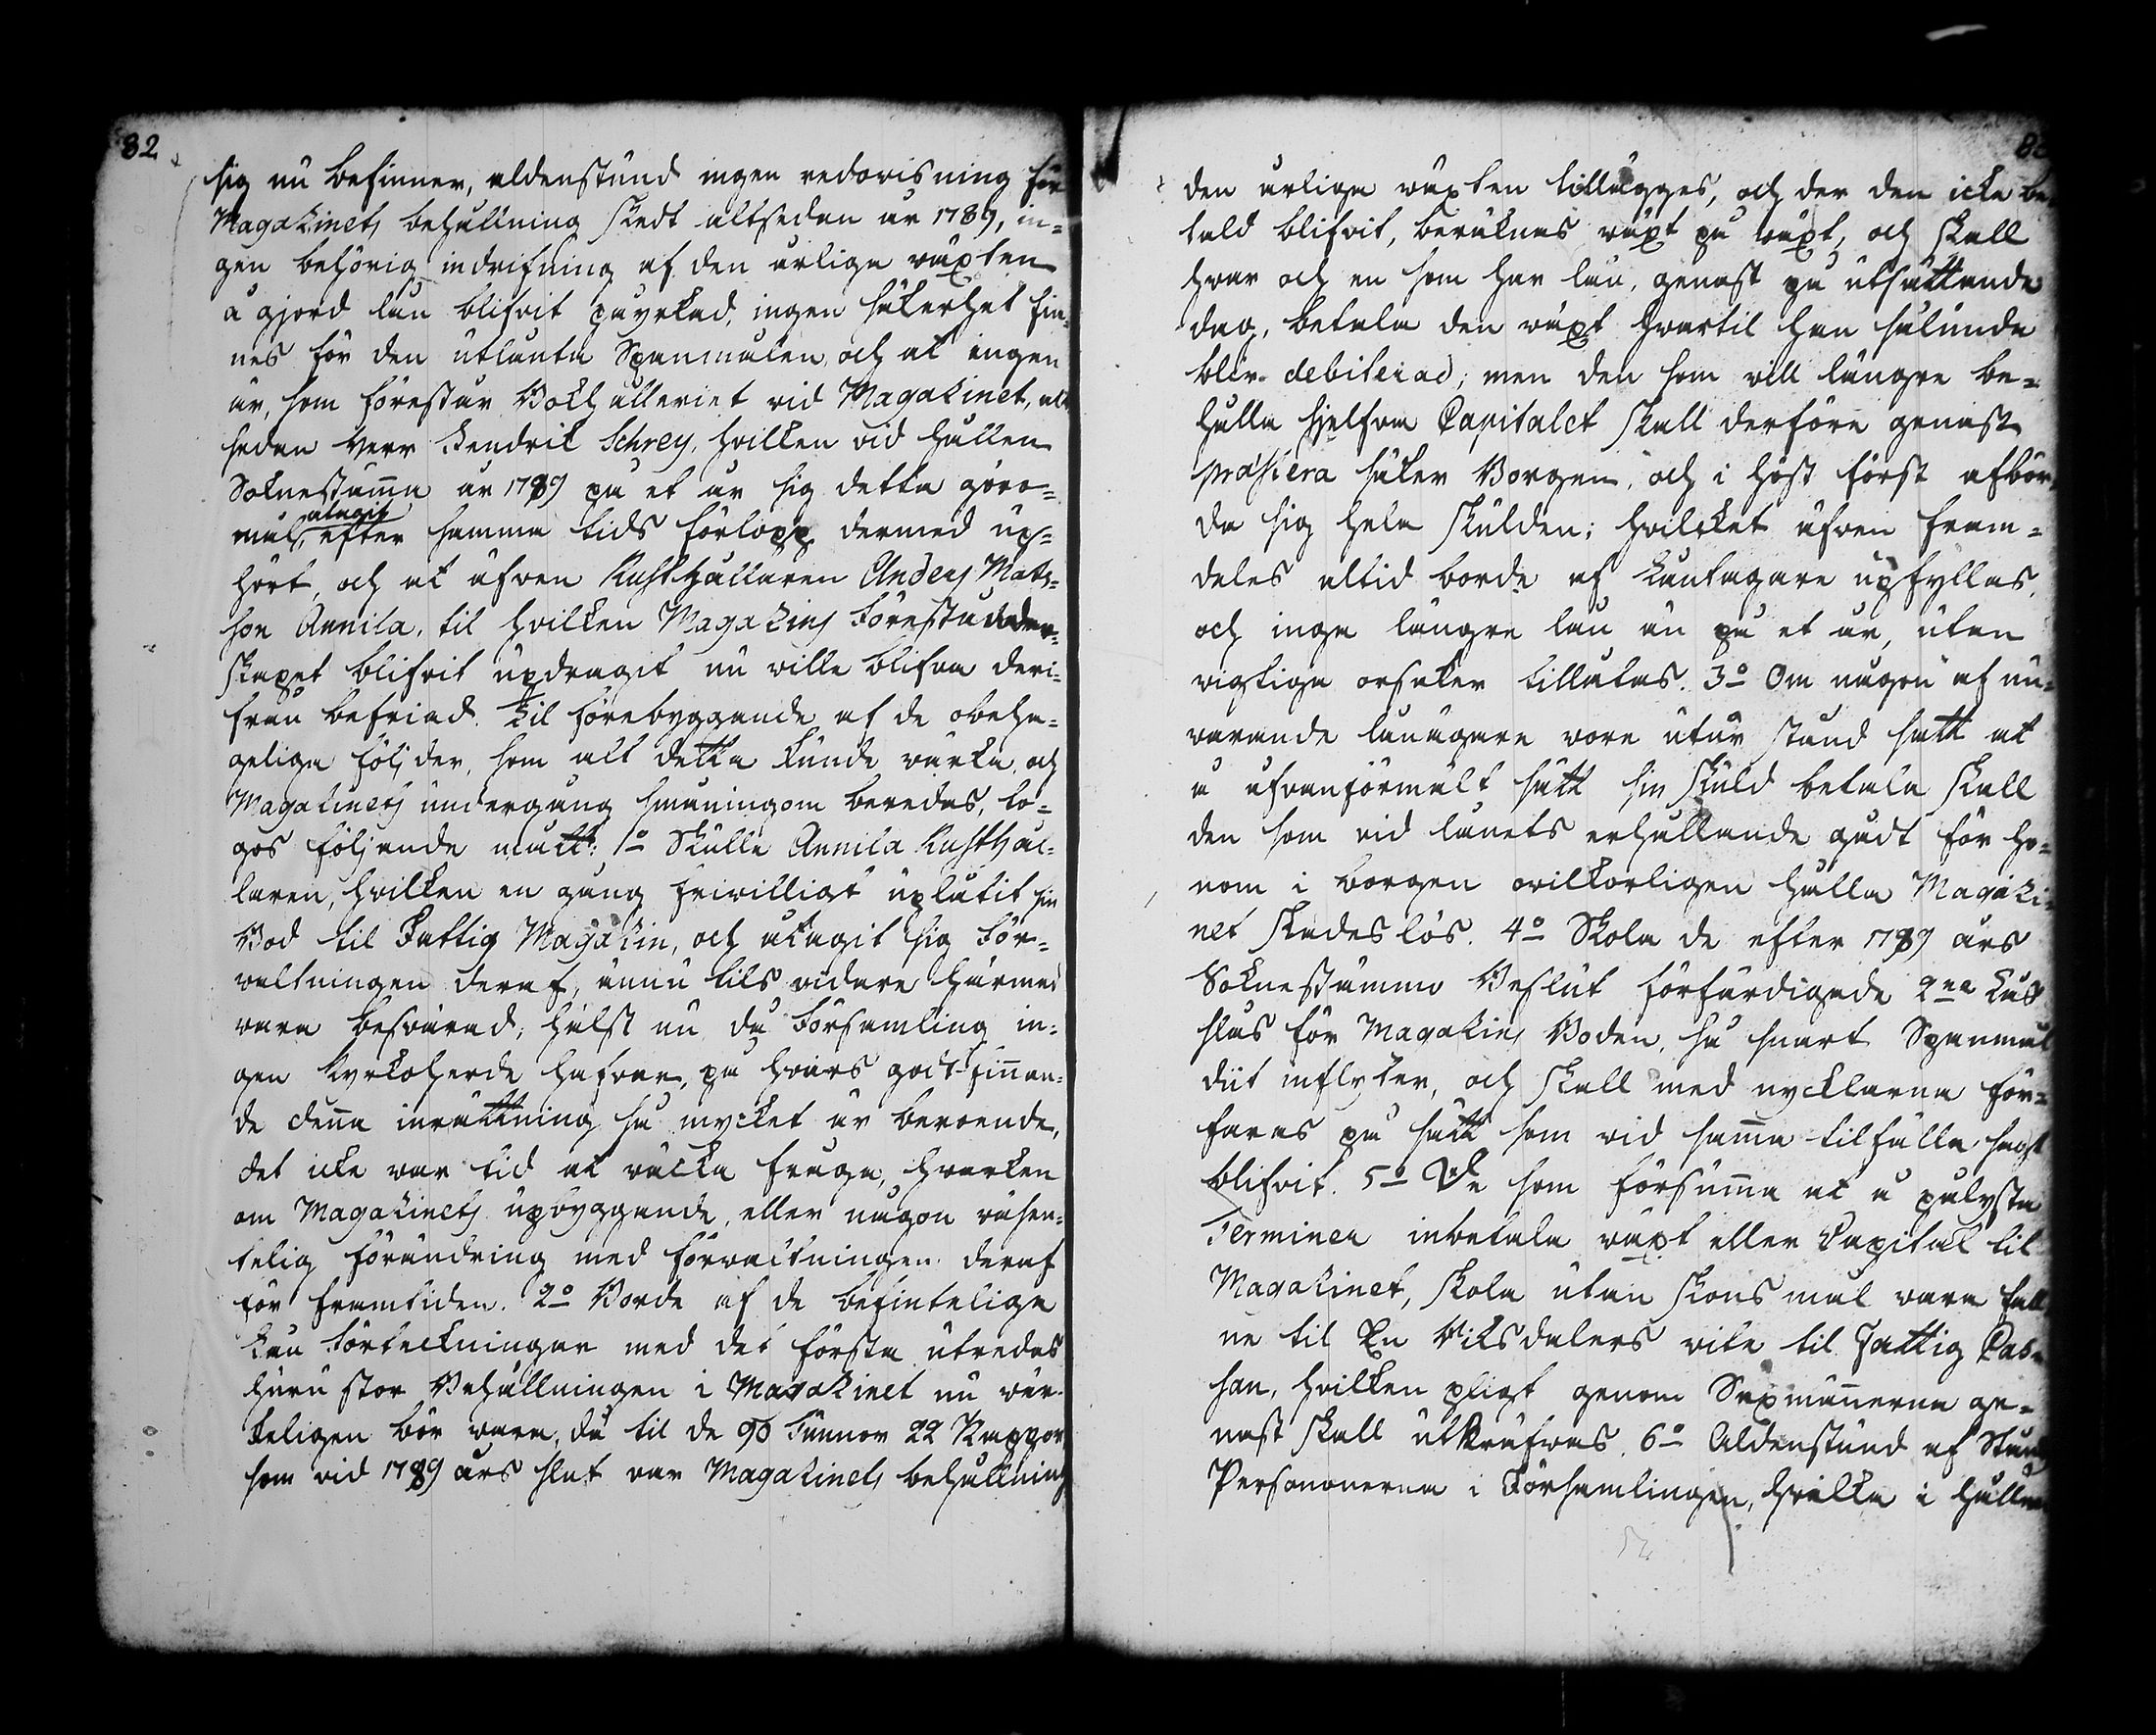 82
sig nu befinner, aldenstund ingen redovisning för
Magazinets behållning skedt altsedan år 1789, in-
gen behörig indrifning af den årliga växten
å gjord lån blifvit påyrkad, ingen säkerhet fin-
nes för den utlånta Spanmålen, och at ingen
är, som förestår Bokhålleriet vid Magazinet, alt
sedan Herr Hendrik Schrey, hvilken vid hållen
Soknestämma år 1789 på et år sig detta göro-
mål, åtagit efter samma tids förlopp dermed up-
hört, och at äfven Rusthållaren Anders Mats-
son Annila, til hvilken Magazins Föreståndar-
skapet blifvit updragit nu ville blifva deri-
från befriad. Til förebyggande af de obeha-
gelige följder, som alt detta kunde värka, och
Magazinets undergång småningom beredas, to-
gos följande mått: 1o Skulle Annila Rusthål-
laren, hvilken en gång frivilligt uplåtit sin
Bod til Fattig Magazin, och åtagit sig För-
valtningen deraf, ännu tils vidare härmed
vara besvärad, hälst nu då Församling in-
gen Kyrkoherde hafver, på hvars godtfinnan-
de denna inrättning så mycket är beroende,
det icke var tid at väcka fråga, hvarken
om Magazinets upbyggande, eller någon väsen-
telig förändring med förvaltningen deraf
för framtiden. 2o Borde af de befintelige
Lån Förteckningar med det första utredas
huru stor Behållningen i Magazinet nu vär-
keligen bör vara, då til de 90 Tunnor 22 Kappor
som vid 1789 års slut var Magazinets behållning
den årliga växten tillägges, och der den icke be-
tald blifvit, beräknas växt på växt, och skall
hvar och en som har lån, genast på utsättande
dag, betala den växt hvartil han sålunda
blir debiterad; men den som vill längre be-
hålla sjelfva Capitalet skall derföre genast
præstera säker Borgen, och i höst först afbör-
da sig hela skulden; hvilcket äfven fram-
deles altid borde af Låntagare upfyllas,
och inga längre lån än på et år, utan
vigtiga orsaker tillåtas. 3o Om någon af nu-
varande låntagare vore utur stånd satt at
å ofvanförmält sätt sin skuld betala skall
den som vid lånets erhållande gådt för ho-
nom i borgen ovilkorligen hålla Magazi-
net skadeslös. 4o Skola de efter 1789 års
Soknestämmo Beslut förfärdigade 2ne Lås
slås för Magazins Boden, så snart Spanmål
dit inflyter, och skall med nycklarna för-
faras på sätt som vid samma tilfälle sagt
blifvit. 5o De som försumma at å pålysta
Terminen inbetala växt eller Capital til
Magazinet, skola utan skonsmål vara fall-
ne til En Riksdalers vite til Fattig Cas-
san, hvilken pligt genom Sexmännerna ge-
nast skall utkräfvas. 6o Aldenstund af Stånds
Personerna i Församlingen, hvilka i hållen